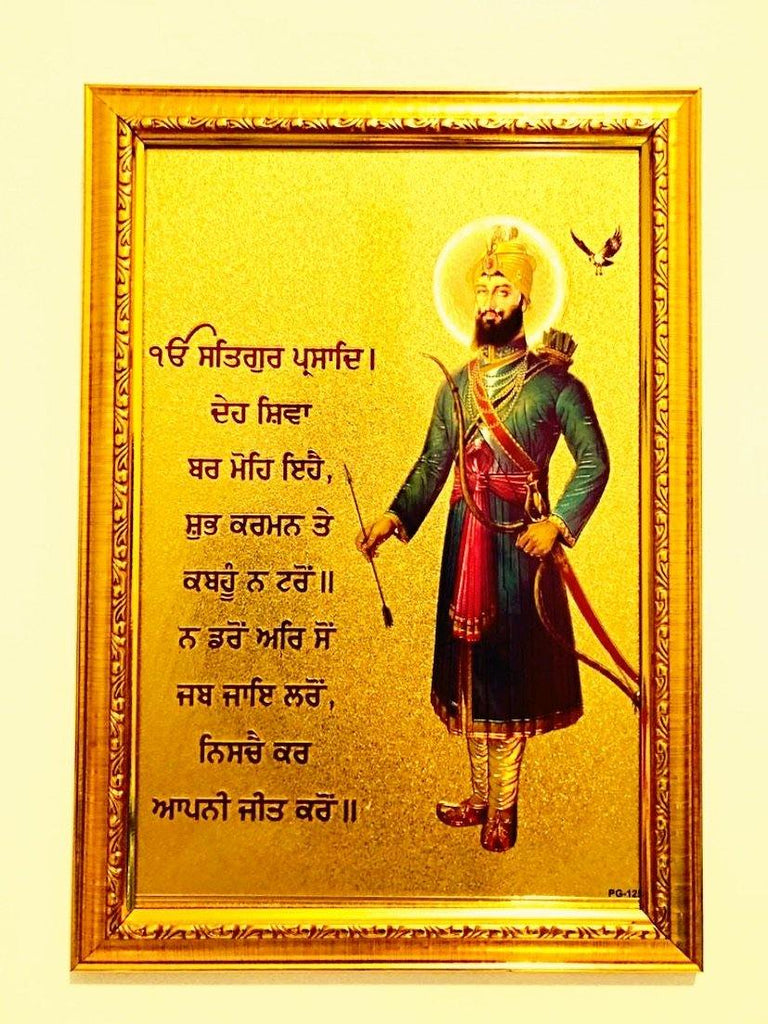 ੴ ਸਤਿਗੁਰ ਪ੍ਰਸਾਦਿ।
ਦੇਹ ਸ਼ਿਵਾ
ਬਰ ਮੋਹਿ ਇਹੈ,
ਸ਼ੁਭ ਕਰਮਨ ਤੇ
ਕਬਹੂੰ ਨ ਟਰੋਂ॥
ਨ ਡਰੋਂ ਅਰਿ ਸੋਂ
ਜਬ ਜਾਇ ਲਰੋਂ,
ਨਿਸਚੈ ਕਰ
ਆਪਨੀ ਜੀਤ ਕਰੋਂ॥